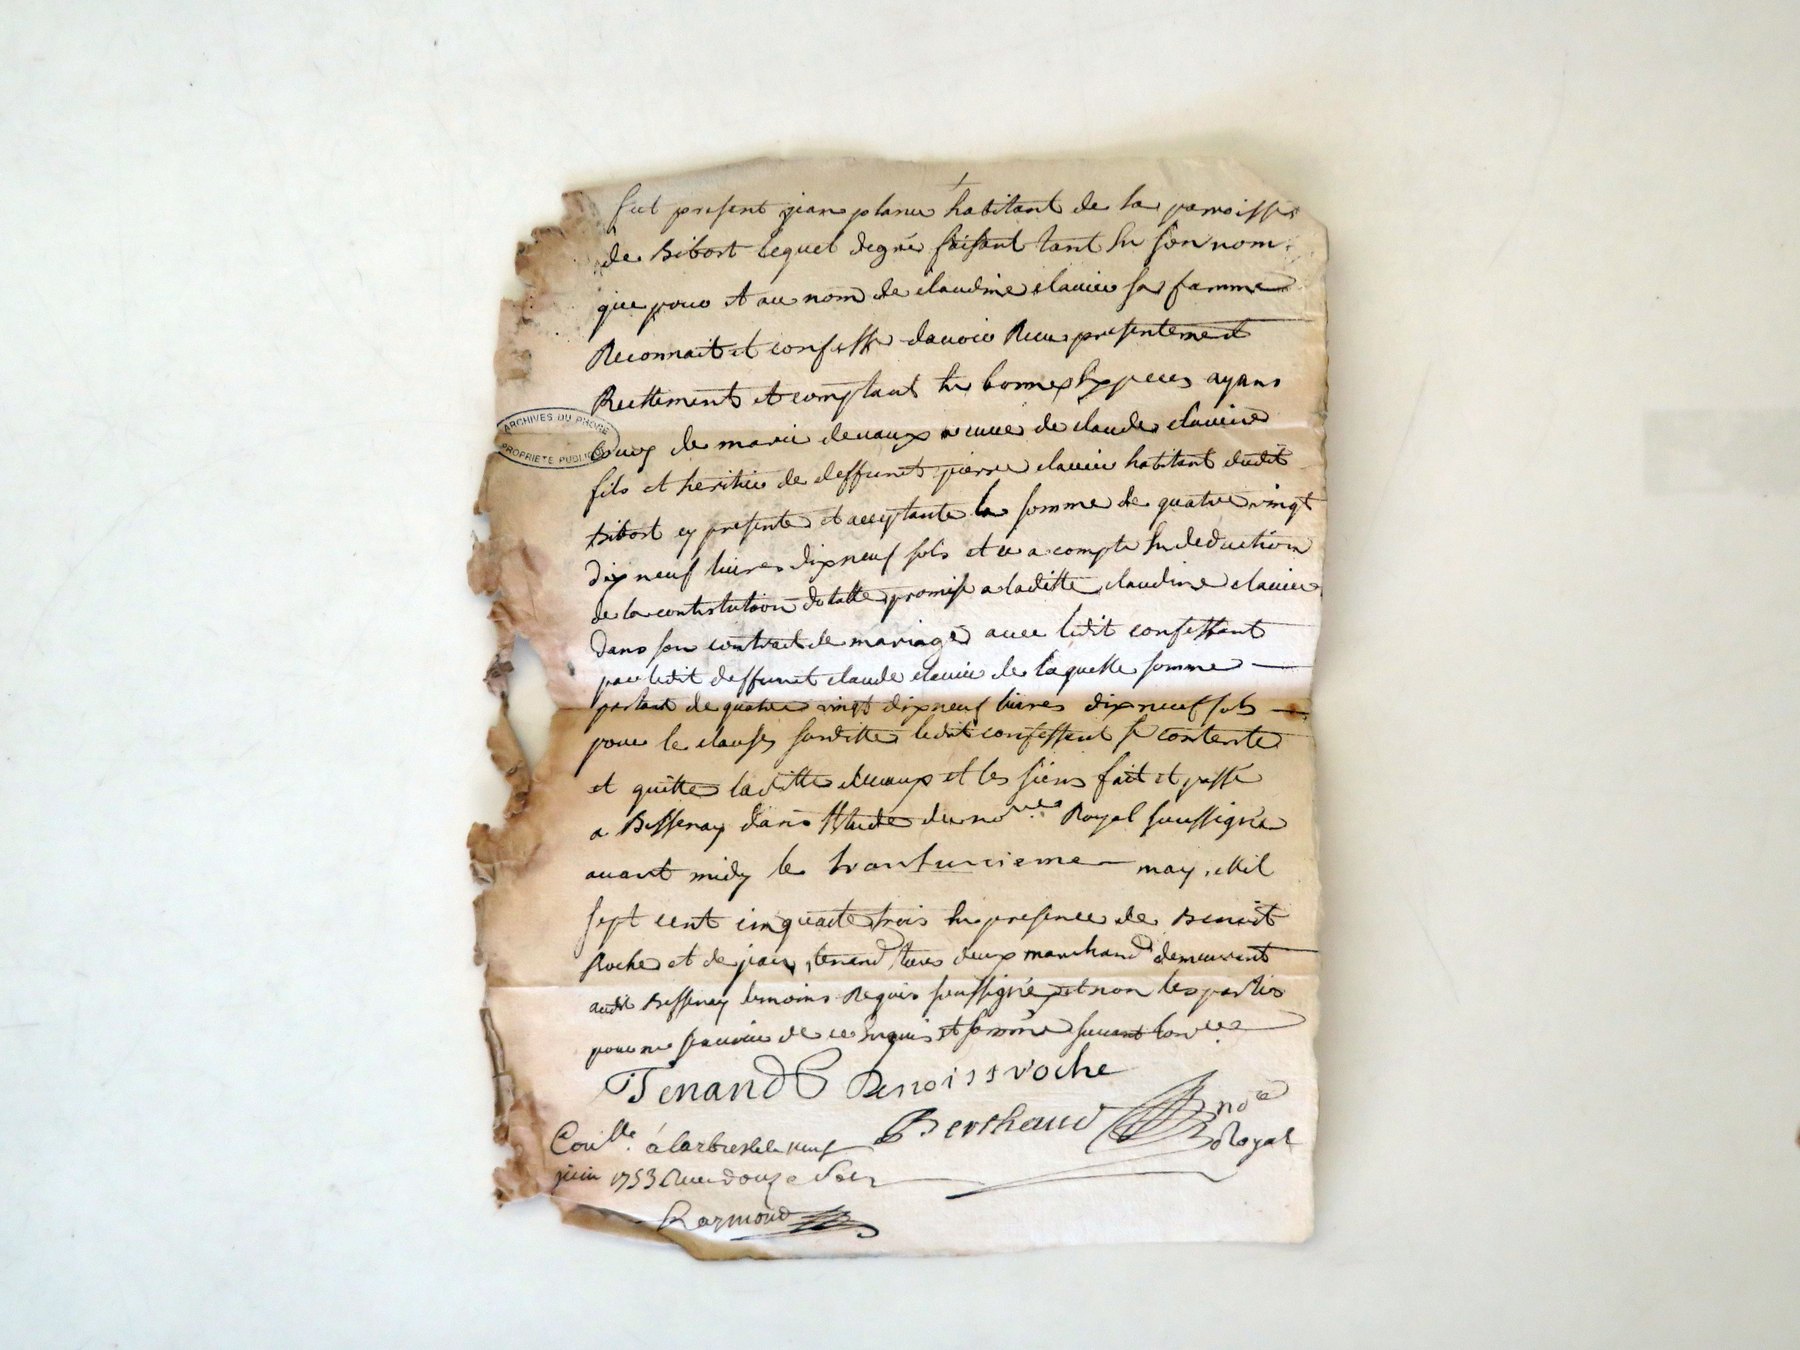 fut present jean planu habitant de la parroisse
de Bibost lequel degré faisant tant en son nom
que pour et au nom de claudine clavier sa famme
Reconnait et confesse davoir Receu presentement
Reellement et comptant en bonnes Especes ayans
cours de marie devaux veuve de claude clavier
fils et heritier de deffunt pierre clavier habitant dudit
Bibost cy presente et acceptante la somme de quatre vingt
dix neuf livres dix neuf sols et ce a compte en deduction
de la constitution dotalle promise a laditte claudine clavier
dans son contrait de mariage avec ledit confessant
par ledit deffunct claude clavier de laquelle somme
partant de quatre vingt dix neuf livres dix neuf sols
pour les causes susditte ledit confessant se contente
et quitte laditte devaux et les siens fait et passé
a Bessenay dans Etude du no.re Royal soussigné
avant midy le trante unieme may. Mil
sept cent cinquante trois en presence de Benoit
Roche et de jean tenand tous deux marchand demeurant
audit Bessenay temoins Requis soussigné et non les parties
pour ne scavoir de ce Enquis et sommé suivant lor.ce
Tenand Benoist roche
Berthaud no.re
Royal
Con.lle à larbresle le neuf
juin 1753 Receu douze sols
Raymond
ARCHIVES DU RHONE
PROPRIETE PUBLIQUE